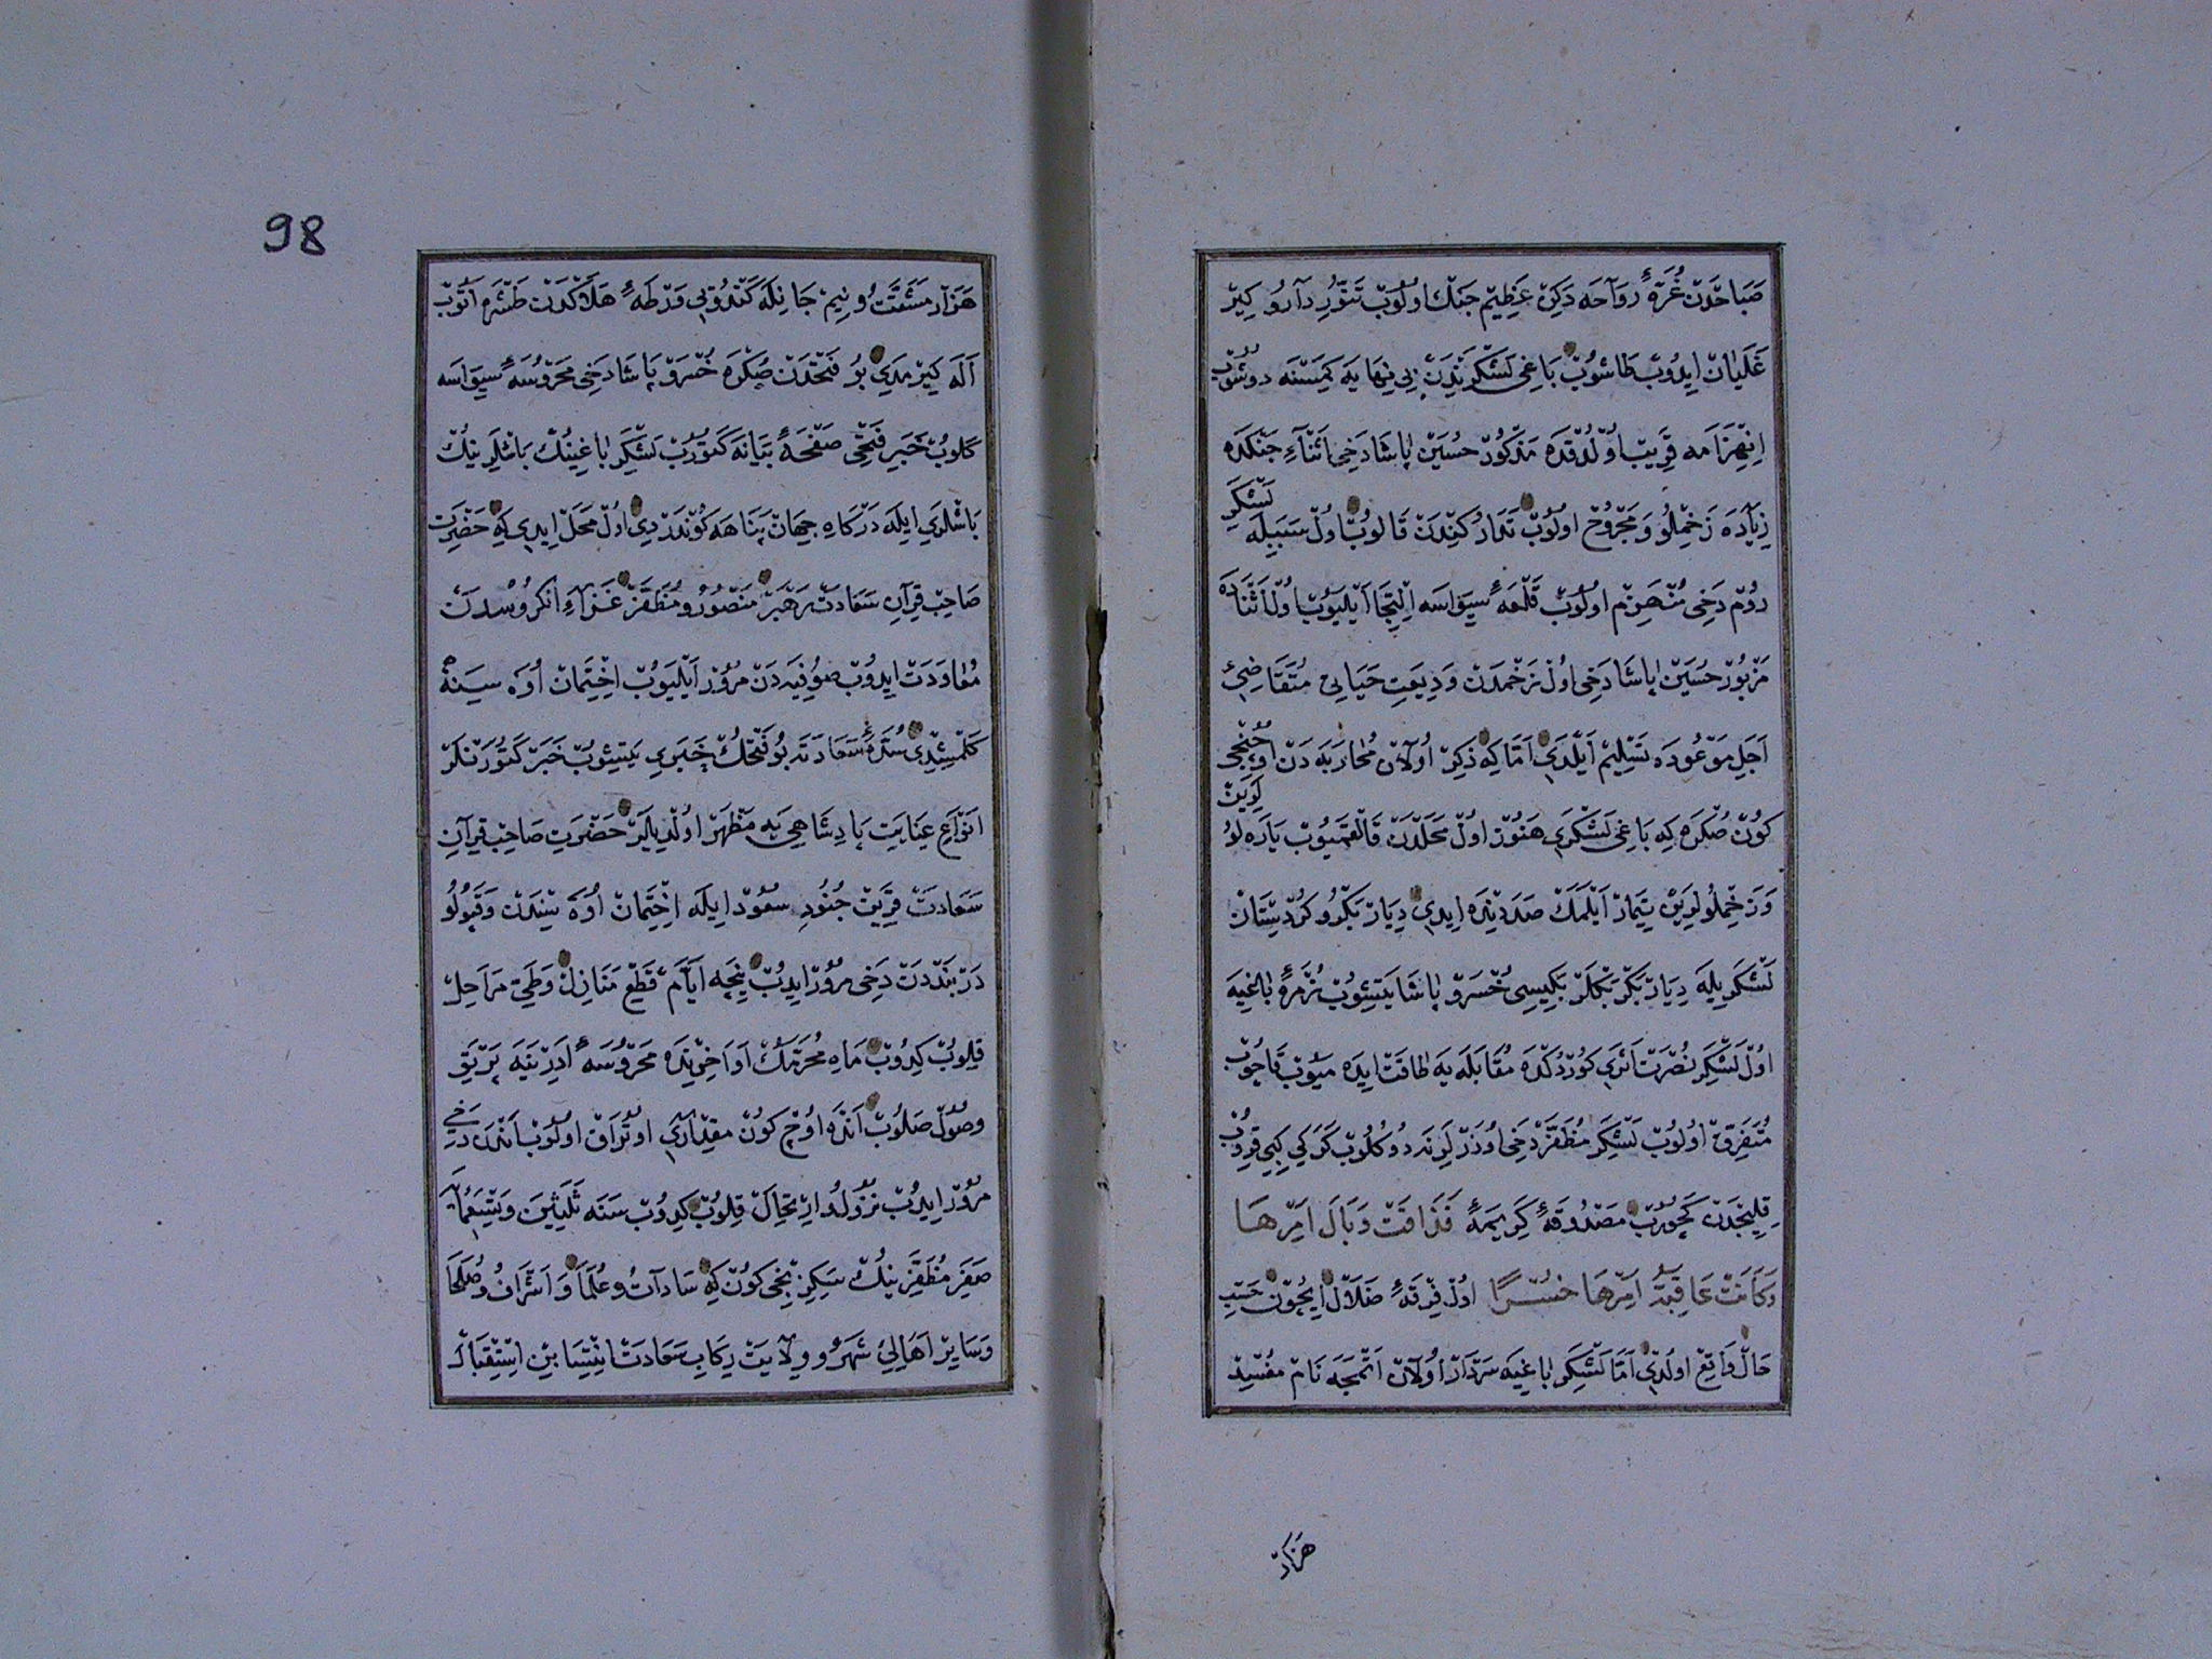 صَبَاحْدَنْ غُرَّۀِ رَوَاحَه دَكِنْ عَظِيمْ جَنْك اُولُوبْ تَنُّورِ دَارُو كِيرْ
غَلَيَانْ ايدُوبْ طَاشُوبْ بَاغِى لَشْكَرِنْدَنْ بِى نِهَايَه كِمَسْنَه دُوشُوبْ
اِنْهِزَامَه قَرِيبْ اُولْدُقْدَه مَذْكُورْ حُسَيْنْ پَاشَا دَخِى اَثْنَاءِ جَنْكْدَه
زِيَادَه زَخْمِلُو وَ مَجْرُوحْ اولُوبْ تَدَارُكِنْدَنْ قَالُوبْ اُولْ سَبَبِلَه لَشْكَرِ
رُومْ دَخِى مُنْهَزِمْ اولُوبْ قَلْعَۀِ سِيوَاسَه اِلْتِجَا اَيْلَيُوبْ اُولْ اَثْنَادَه
مَزْبُورْ حُسَيْنْ پَاشَا دَخِى اُولْ زَخْمَدَنْ وَدِيعَتِ حَيَاتِى مُتَقَاضِئِ
اَجَلِ مَوْعُودَه تَسْلِيمْ اَيْلَدِى اَمَّا كِه ذِكْرْ اُولَانْ مُحَارَبَه دَنْ اوُچُنْجِى
كُونْ صُكْرَه كِه بَاغِى لَشْكَرِى هَنُوزْ اُولْ مَحَلْدَنْ قَالْقْمَيُوبْ يَارَه لُولَرِينْ
وَ زَخْمِلُولَرِينْ تِيمَارْ اَيْلَمَكْ صَدَدِنْدَه اِيدِى دِيَارْ بَكْرْ وكُرْدِسْتَانْ
لَشْكَرِيلَه دِيَارْ بَكْرْ بَكْلَرْ بَكِيسِى خُسْرَوْ پَاشَا يَتِشُوبْ زُمْرَۀِ بَاغِيَه
اُولْ لَشْكَرِ نُصْرَتْ اَثَرِى كُورْدُكْدَه مُقَابَلَه يَه طَاقَتْ ايدَه مَيُوبْ قَاچُوبْ
مُتَفَرِّقْ اولُوبْ لَشْكَرِ مُظَفَّرْ دَخِى اُوزَرْلَرِنَه دُوكُلُوبْ كَرَكِى كِبِى قِرُوبْ
قِلِيجْدَنْ كَچُورُبْ مَصْدُوقَۀِ كَرِيمَۀِ فَذَاقَتْ وَبَالَ اَمْرِهَا
وَكَانَ عَاقِبَةُ اَمْرِهَا خُسْرًا اُولْ فِرْقَۀِ ضَلَالْ اِيچُونْ حَسْبِ
حَالْ وَاقِعْ اولْدِى اَمَّا لَشْكَرِ بَاغِيَه سَرْدَارْ اُولَانْ اَتْمَجَه نَامْ مُفْسِدْ
هَزَارْ
98
هَزَارْ مَشَقَّتْ و نِيمْ جَانِلَه كَنْدُوىِ وَرْطَۀِ هَلَاكْدَنْ طَشْرَه اَتُوبْ
اَلَه كِيرْمَدِى بُو فَتْحْدَنْ صُكْرَه خُسْرَوْ پَاشَا دَخِى مَحْرُوسَۀِ سِيوَاسَه
كَلُوبْ خَبَرِ فَتْحِى صَفْحَۀِ بَيَانَه كَتُورُبْ لَشْكَرِ بَاغِينُكْ بَاشْلَرِينُكْ
بَاشْلَرِى ايلَه دَرْكَاهِ جِهَانْ پَنَاهَه كُونْدَرْدِى اُولْ مَحَلْ ايدِى كِه حَضْرَتِ
صَاحِبْ قِرَانِ سَعَادَتْ رَهْبَرْ مَنْصُورُ و مُظَفَّرْ غَزَاءِ اَنْكُرُوسْدَنْ
مُعَاوَدَتْ ايدُوبْ صُوفِيَه دَنْ مُرُورْ اَيْلَيُوبْ اِخْتِمَانْ اُوَه سِينَه
كَلْمِشْدِى سُدَّۀِ سَعَادَتَه بُو فَتْحُكْ خَبَرِى يَتِشُوبْ خَبَرْ كَتُورَنْلَرْ
اَنْوَاعِ عِنَايَتِ پَادِشَاهِى يَه مَظْهَرْ اولْدِيلَرْ حَضْرَتِ صَاحِبْ قِرَانِ
سَعَادَتْ قَرِينْ جُنُودِ سُعُودْ ايلَه اِخْتِمَانْ اُوَه سِنْدَنْ وَقَپُولُو
دَرْبَنْدْدَنْ دَخِى مُرُورْ ايدُبْ نِيجَه اَيَّامْ قَطْعِ مَنَازِلْ وَ طَىِّ مَرَاحِلْ
قِلُوبْ كِدُوبْ مَاهِ مُحَرَّمُكْ اَوَاخِرِنْدَه مَحْرُوسَۀِ اَدِرْنَيَه
وصُولْ صَلُوبْ اَنْدَه اُوچْ كُونْ مِقْدَارِى اوتُرَاقْ اولُوبْ اَنْدَنْ دَخِى
مُرُورْ ايدُبْ نُزُولُ و اِرْتِحَالْ قِلُوبْ كِدُوبْ سَنَه ثَلَثِينَ وَ تِسْعَمِأَه
صَفَرِ مُظَفَّرِينُكْ سَكِزِنْجِى كُونْ كِه سَادَاتْ و عُلَمَا وَ اَشْرَافْ و صُلَحَا
وَ سَايِرْ اَهَالِئِ شَهْر و وِلَايَتْ رِكَابِ سَعَادَتْ اِنْتِسَابِنْ اِسْتِقْبَالْ